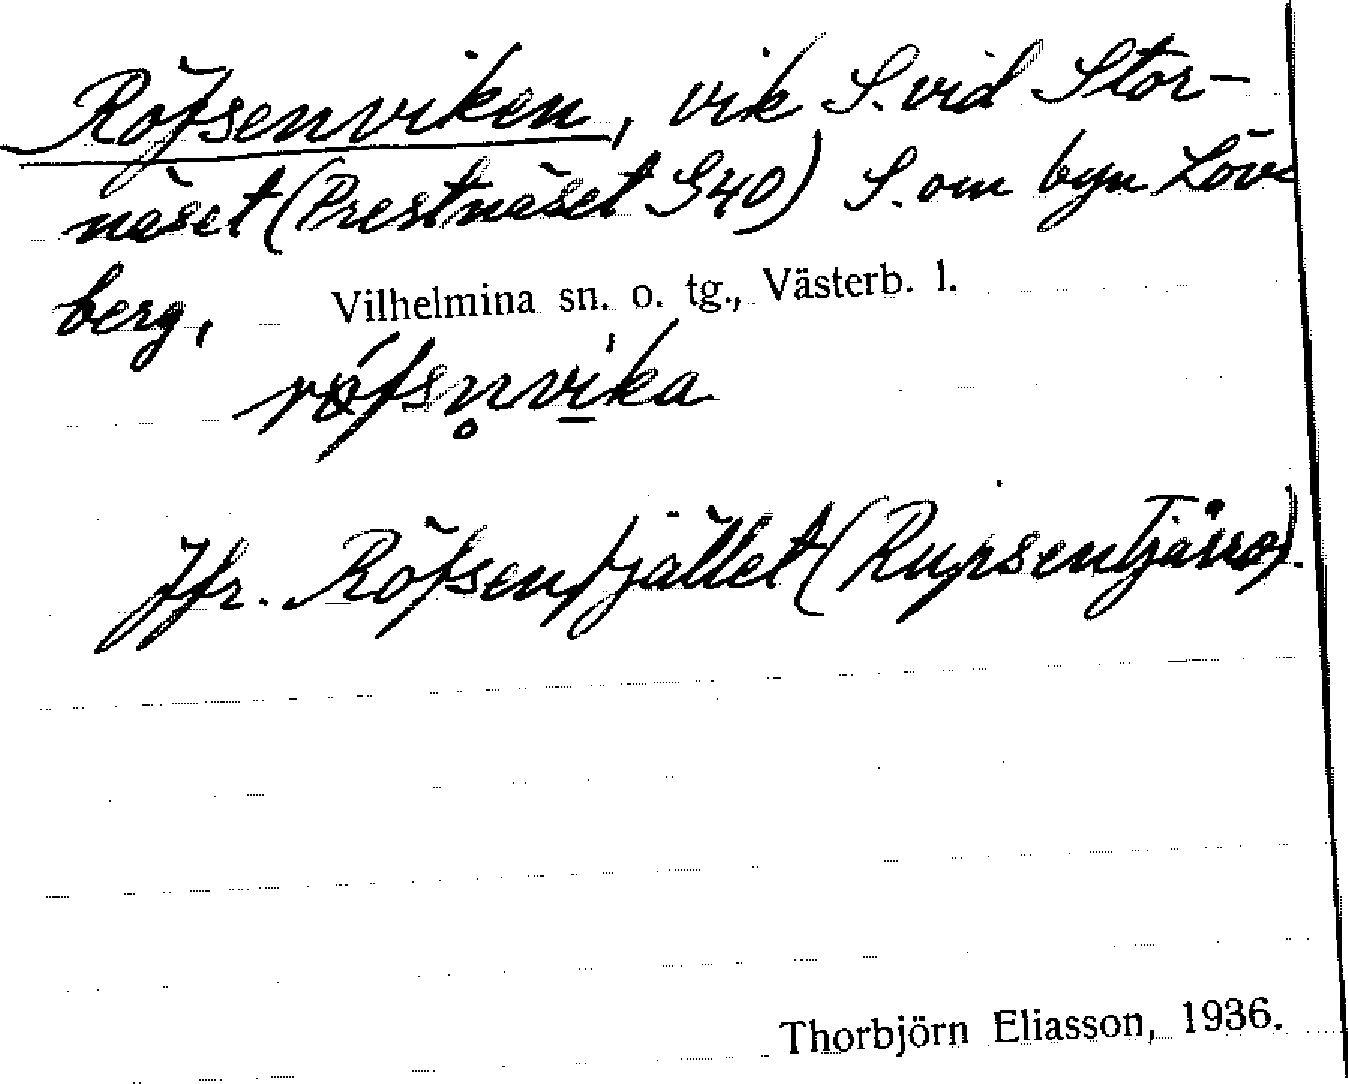 Röfsenviken, vik S. vid Stor-
näset (Prestnäset G40) S. om byn Löv-
berg,
Vilhelmina sn. o. tg., Västerb. l.
røfsn̥vi̱ka
Jfr. Röfsenfjället (Rupsentjåro).
Thorbjörn Eliasson, 1936.